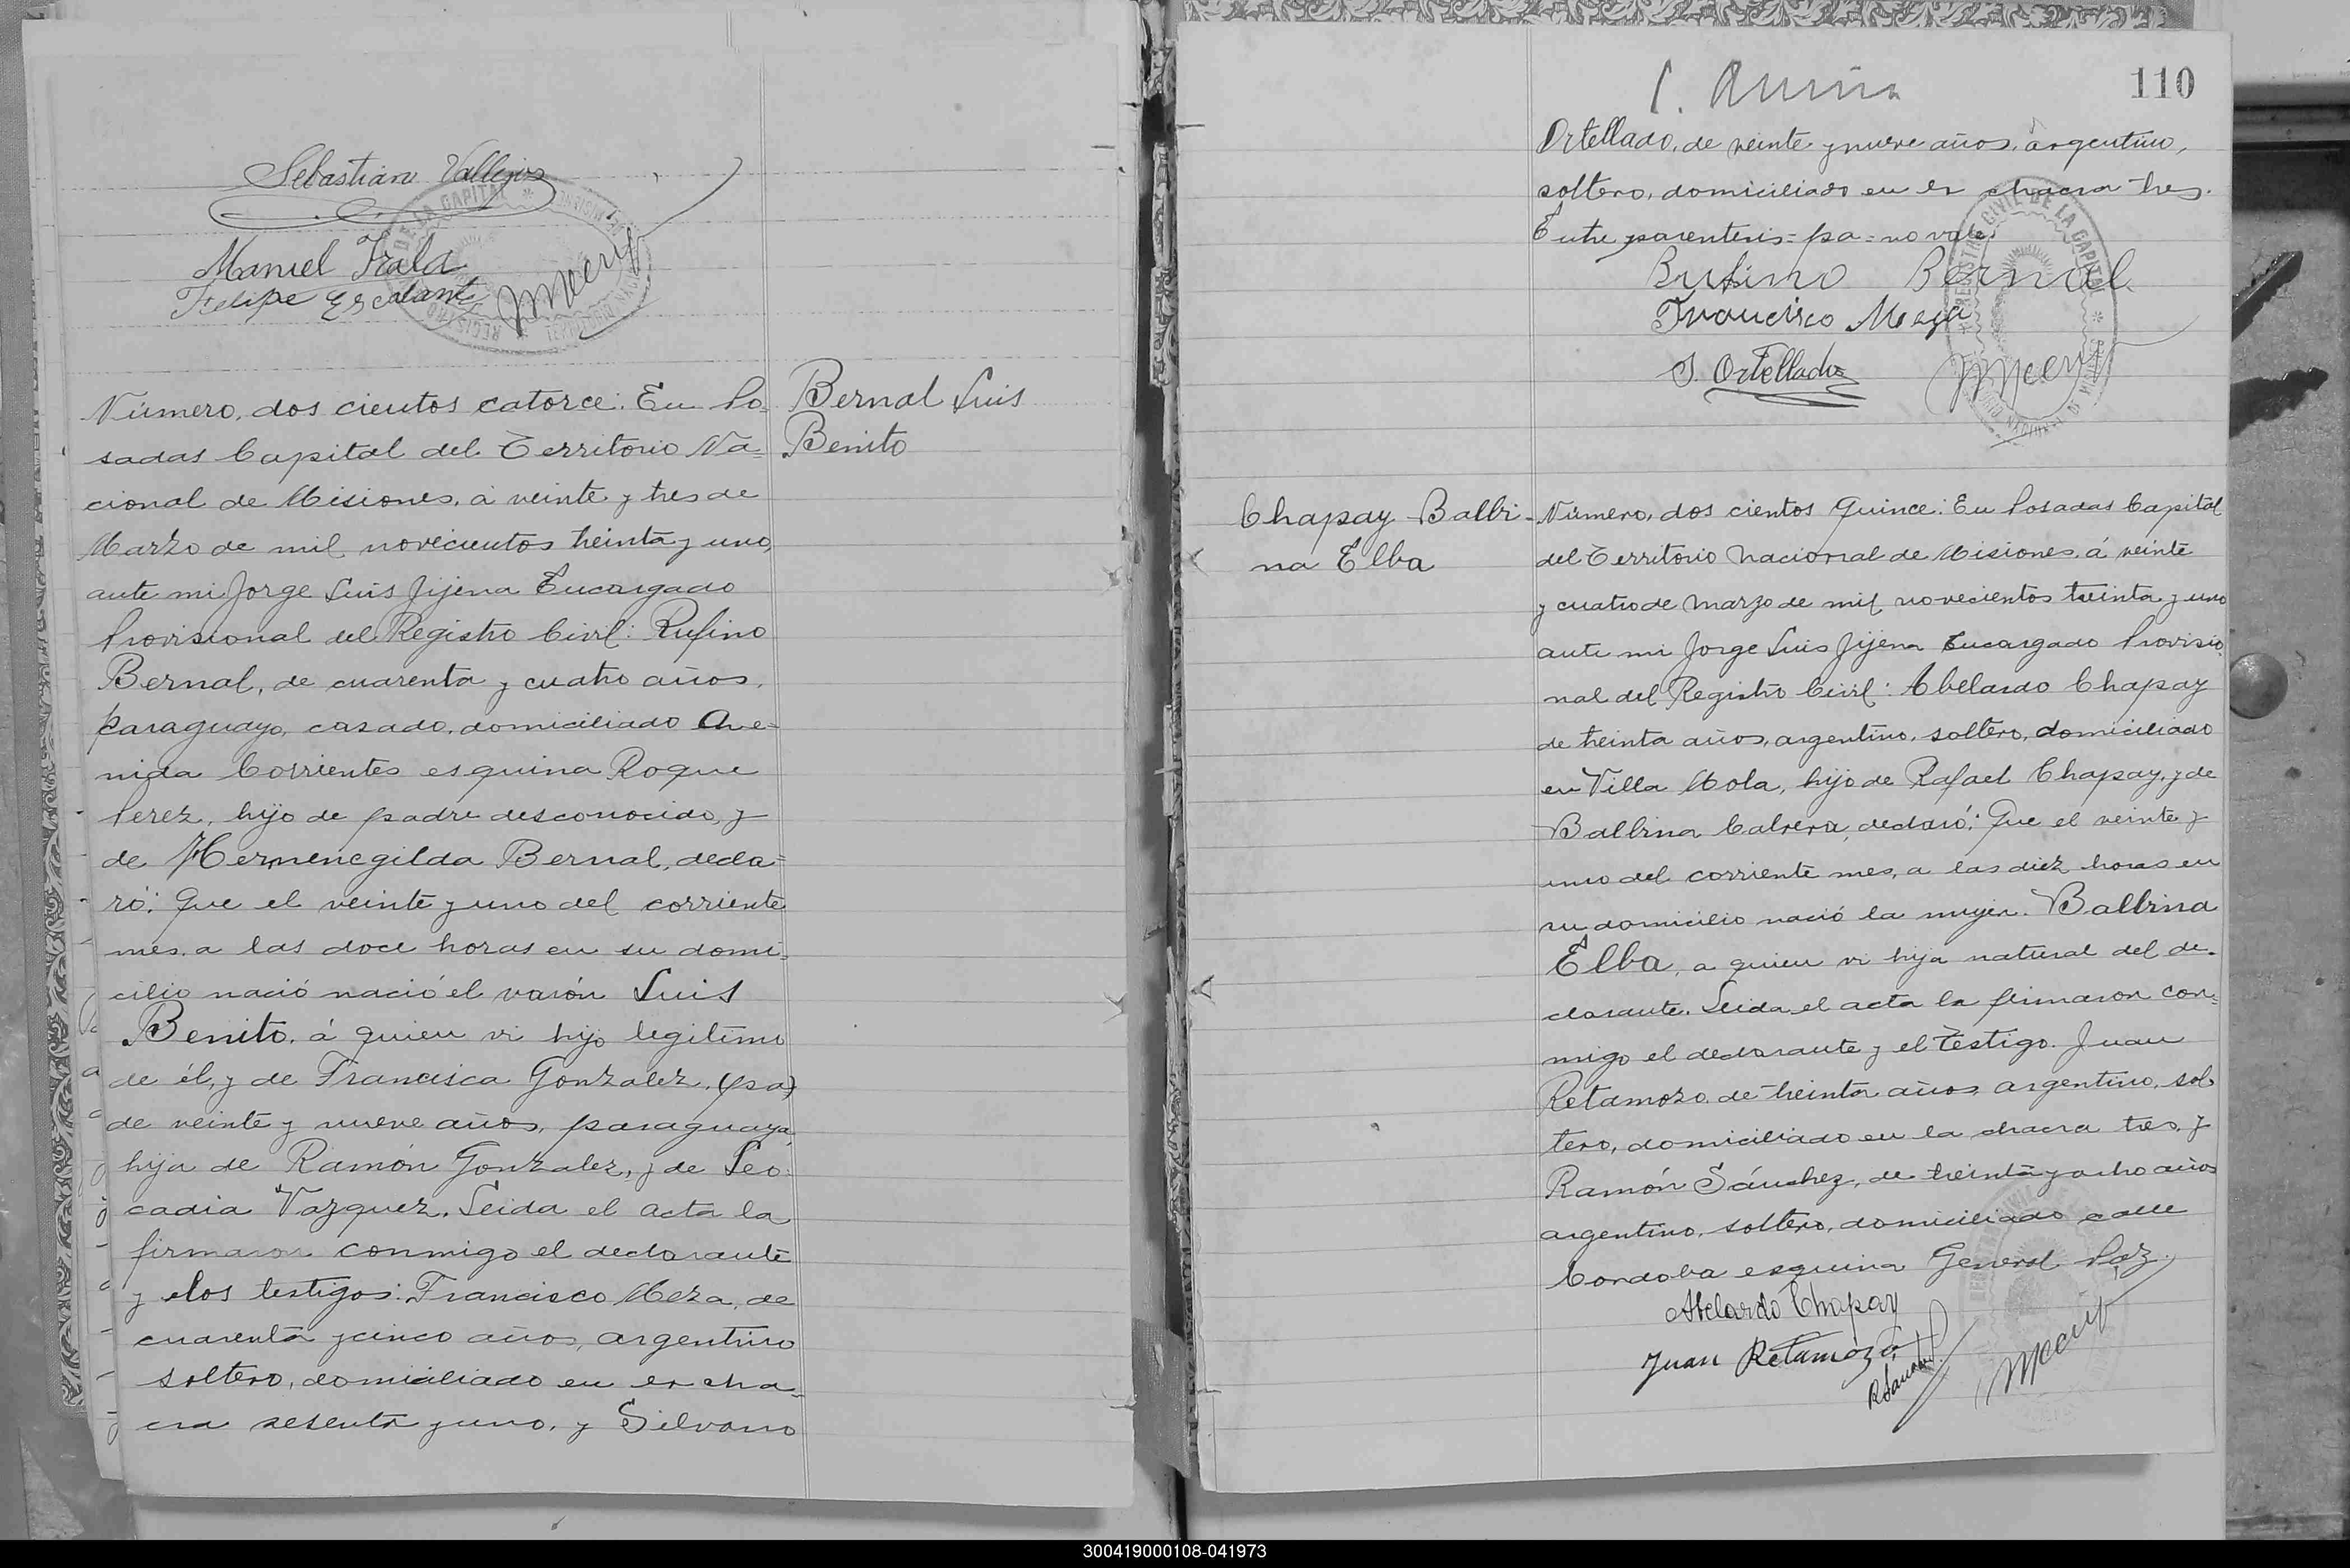 Sebastian Vallejos
Manuel Irala
Felipe Escalant
Bernal Luis
Benito
Número, dos cientos catorce: En Po-
sadas Capital del Territorio Na=
cional de Misiones, á veinte y tres de
Marzo de mil novecientos treinta y uno,
ante mi Jorge Luis Jijena Encargado
Provisional del Registro Civil: Rufino
Bernal, de cuarenta y cuatro años,
paraguayo, casado, domiciliado Ave-
nida Corrientes esquina Roque
Perez, hijo de padre desconocido, y
de Hermenegilda Bernal, decla=
ró: Que el veinte y uno del corriente
mes, a las doce horas en su domi=
cilio nació nació el varón Luis
Benito, á quien vi hijo legitimo
de él, y de Francisca Gonzalez, (pa)
de veinte y nueve años, paraguaya,
hija de Ramón Gonzalez, y de Leo-
cadia Vazquez. Leida el acta la
firmaron conmigo el declarante
y los testigos: Francisco Meza, de
cuarenta y cinco años, argentino
soltero, domiciliado en la cha-
cra sesenta y uno, y Silvano
110
Ortellado, de veinte y nueve años, argentino,
soltero, domiciliado en la chacra tres.
Entre parentesis=pa=no vale.
Rufino Bernal
Francisco Meza
S. Ortellado
Chapay Balbi-
na Elba
Número, dos cientos quince: En Posadas Capital
del Territorio Nacional de Misiones, á veinte
y cuatro de Marzo de mil novecientos treinta y uno
ante mi Jorge Luis Jijena Encargado Provisio-
nal del Registro Civil: Abelardo Chapay
de treinta años, argentino, soltero, domiciliado
en Villa Mola, hijo de Rafael Chapay, y de
Balbina Cabrera, declaró: Que el veinte y
uno del corriente mes, a las diez horas en
su domicilio nació la mujer Balbina
Elba, a quien vi hija natural del de-
clarante. Leida el acta la firmaron con=
migo el declarante y el testigo. Juan
Retamozo, de treinta años, argentino, sol-
tero, domiciliado en la chacra tres, y
Ramón Sánchez, de treinta y ocho años
argentino, soltero, domiciliado calle
Cordoba esquina General Paz.
Abelardo Chapay
Juan Retamozo
300419000108-041973